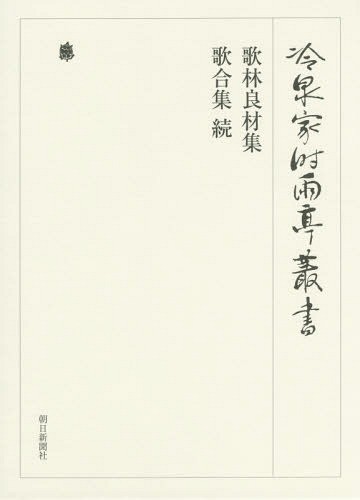 冷泉家時雨亭叢書
歌林良材集
歌合集 続
朝日新聞社